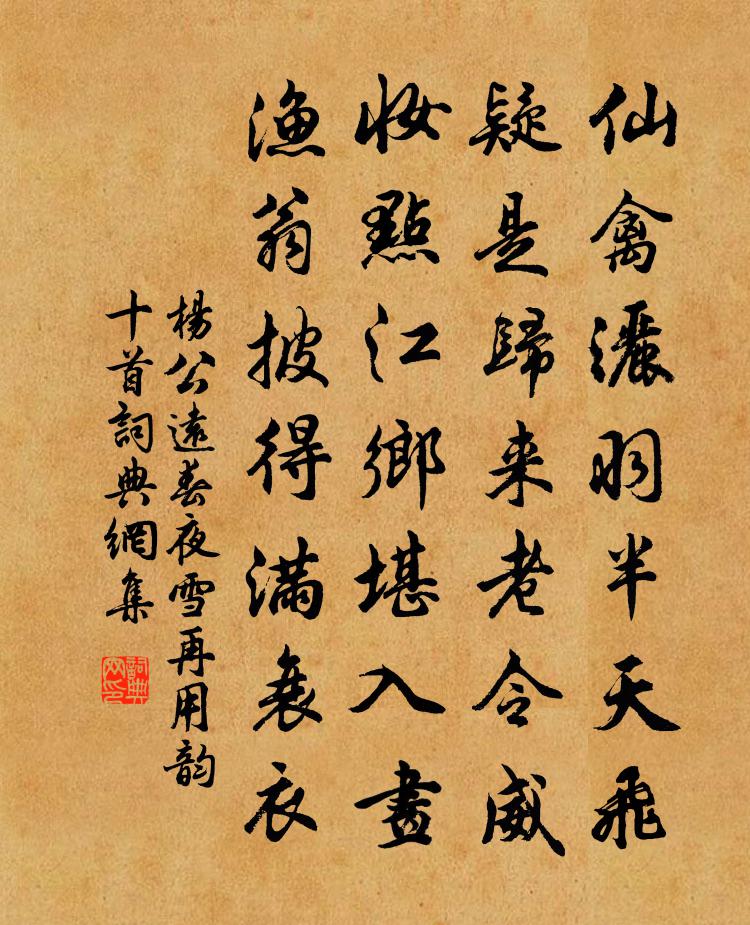 仙禽灑羽半天飛
疑是歸来老令威
妝點江鄉堪入畫
漁翁披得滿蓑衣
楊公遠春夜雪再用韵
十首詞典網集
詞典網印